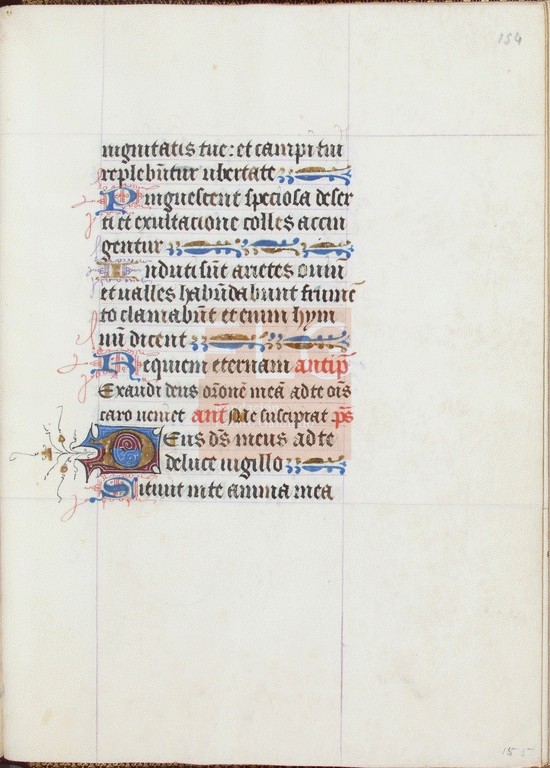 154
nignitatis tue: et campi tui
replebūtur ubertate
Pinguescent speciosa deser
ti et exultacione colles accin
gentur
Induti sūt arietes ouiū
et ualles habūdabunt frumē
to clamabūt etenim hym
nū dicent
Requiem eternam antip̄
Exaudi deus or̄onē meā ad te oīs
caro ueniet ant̄ Me suscipiat p̄s
Deus d̄s meus ad te
de luce uigillo
Sitiuit in te anima mea
155